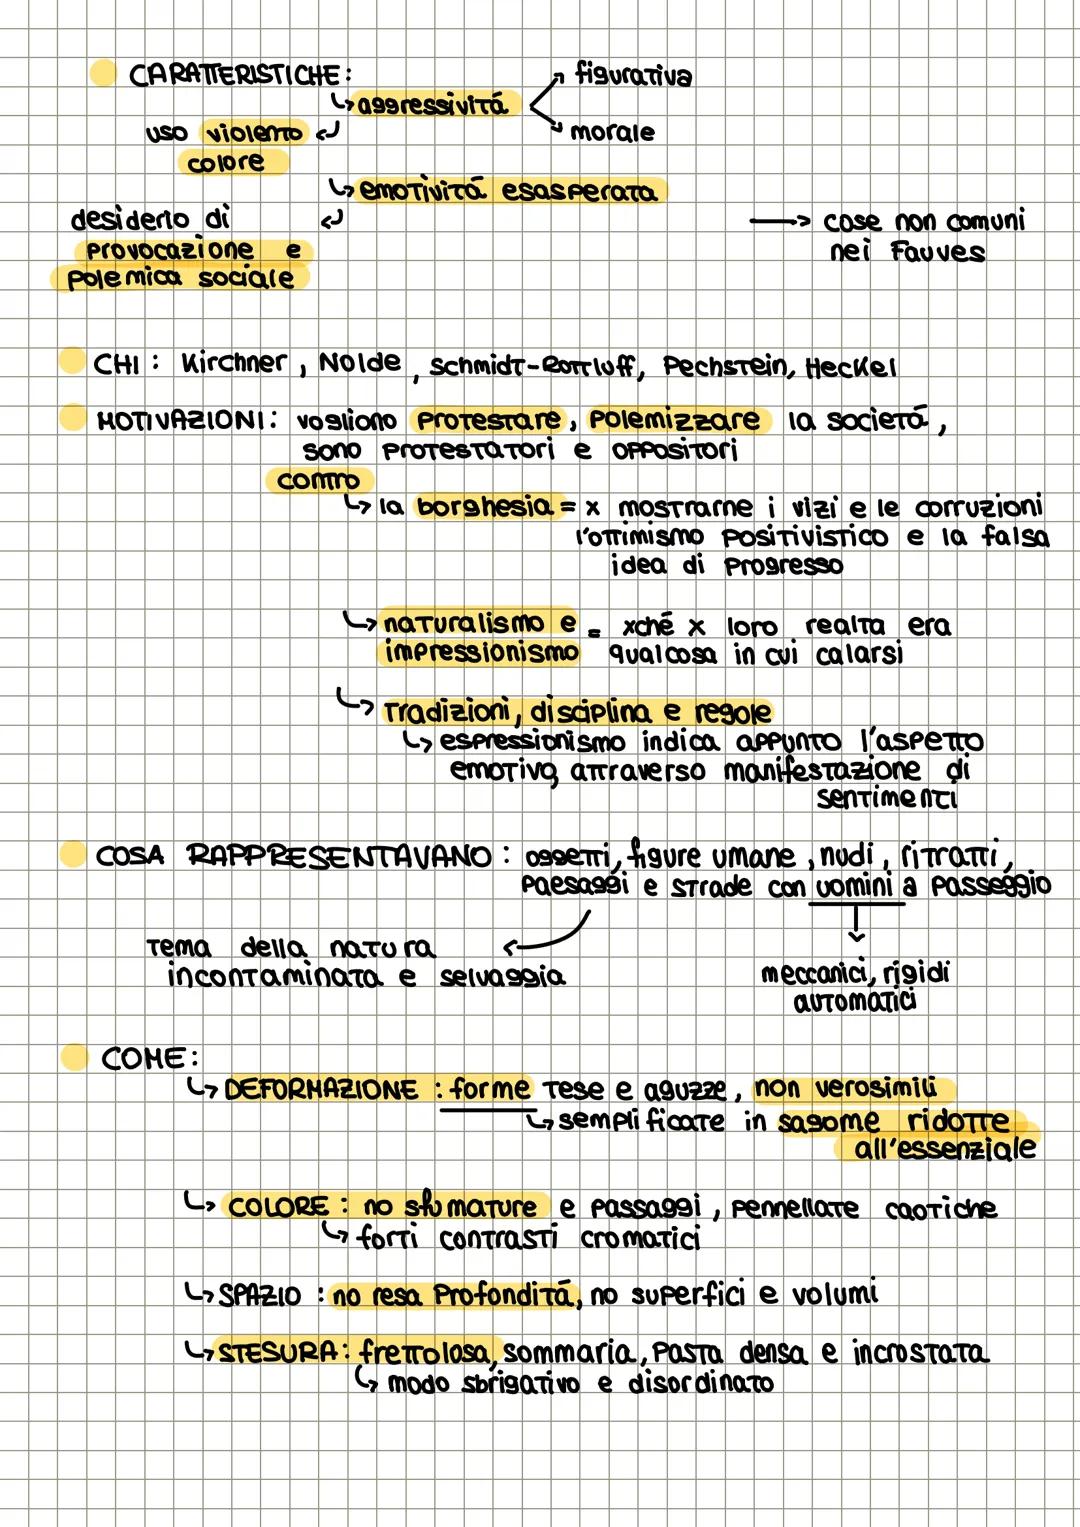 CARATTERISTICHE:
figurativa
aggressivitá
morale
uso violento
colore
emotivitá esasperata
desiderio di
provocazione e
polemica sociale
cose non comuni
nei Fauves
CHI: Kirchner, Nolde, Schmidt-Rottluff, Pechstein, Heckel
MOTIVAZIONI: vogliono protestare, polemizzare la societá,
sono protestatori e oppositori
contro
la borghesia = x mostrarne i vizi e le corruzioni
l'ottimismo positivistico e la falsa
idea di progresso
naturalismo e = xché x loro realta era
impressionismo qualcosa in cui calarsi
tradizioni, disciplina e regole
espressionismo indica appunto l'aspetto
emotivo, attraverso manifestazione di
sentimenti
COSA RAPPRESENTAVANO: oggetti, figure umane, nudi, ritratti,
paesaggi e strade con uomini a passeggio
tema della natura
incontaminata e selvaggia
meccanici, rigidi
automatici
COME:
DEFORMAZIONE: forme tese e aguzze, non verosimili
semplificate in sagome ridotte
all'essenziale
COLORE: no sfumature e passaggi, pennellate caotiche
forti contrasti cromatici
SPAZIO: no resa profonditá, no superfici e volumi
STESURA: frettolosa, sommaria, pasta densa e incrostata
modo sbrigativo e disordinato